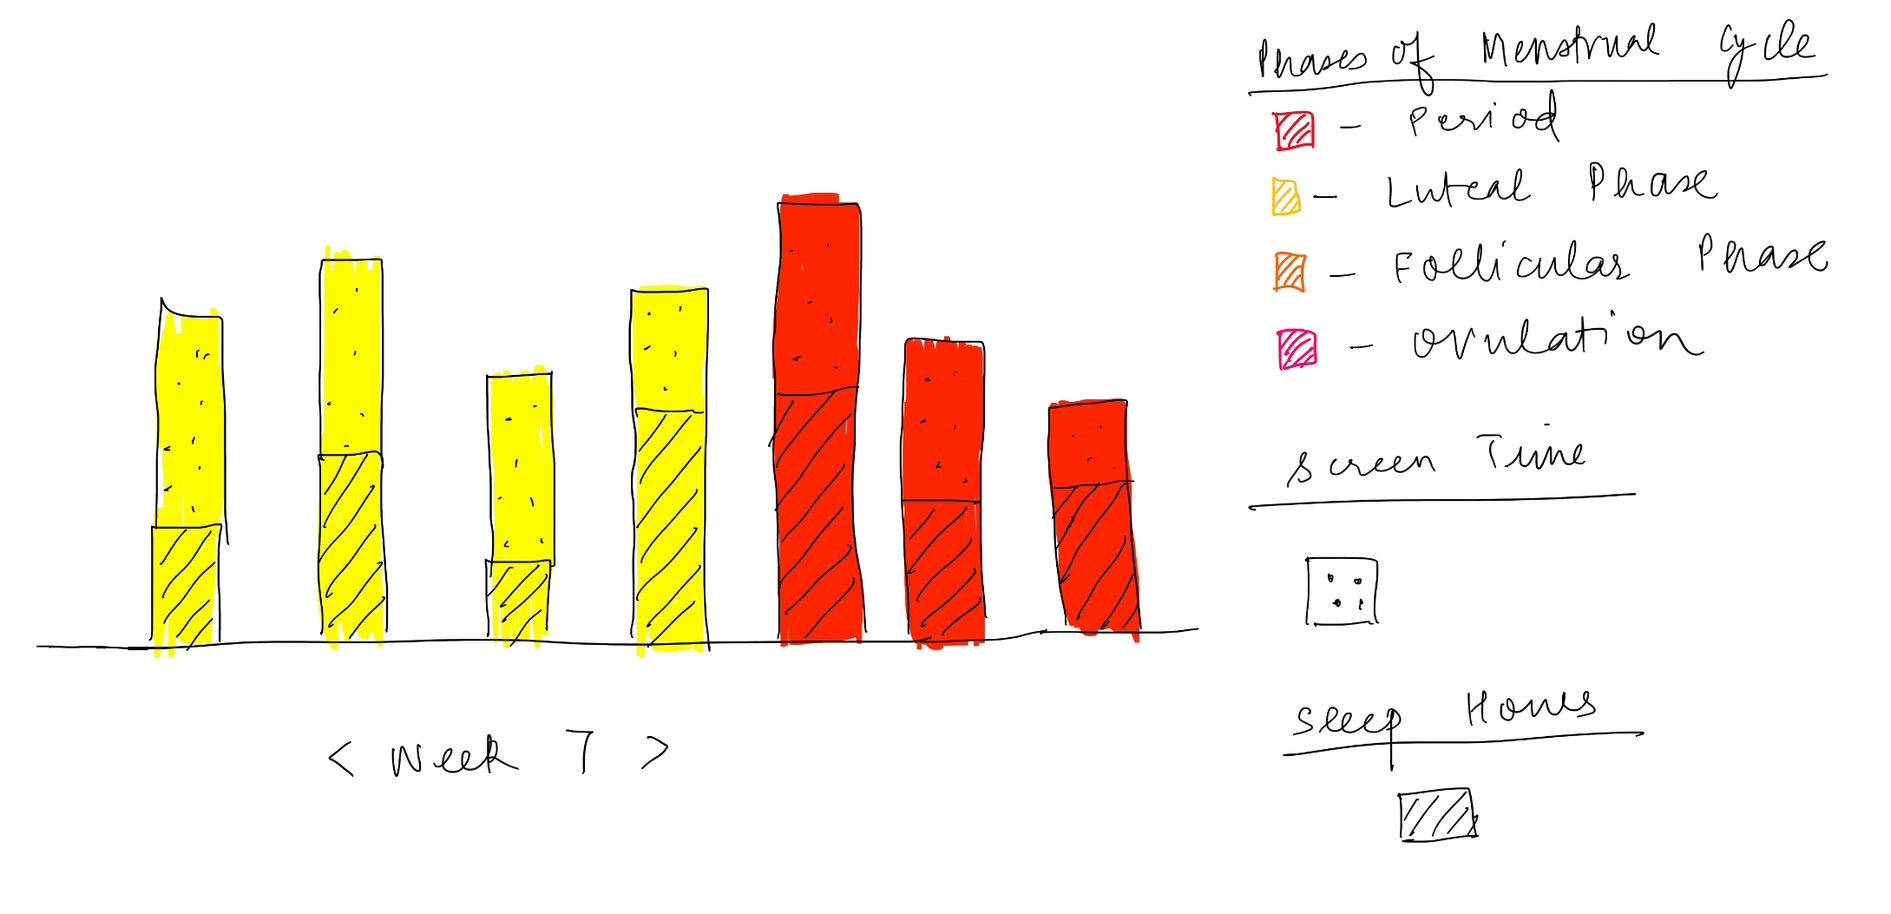 Phases of Menstrual Cycle
- Period
- Luteal Phase
- Follicular Phase
- Ovulation
Screen Time
Sleep Hours
< Week 7 >